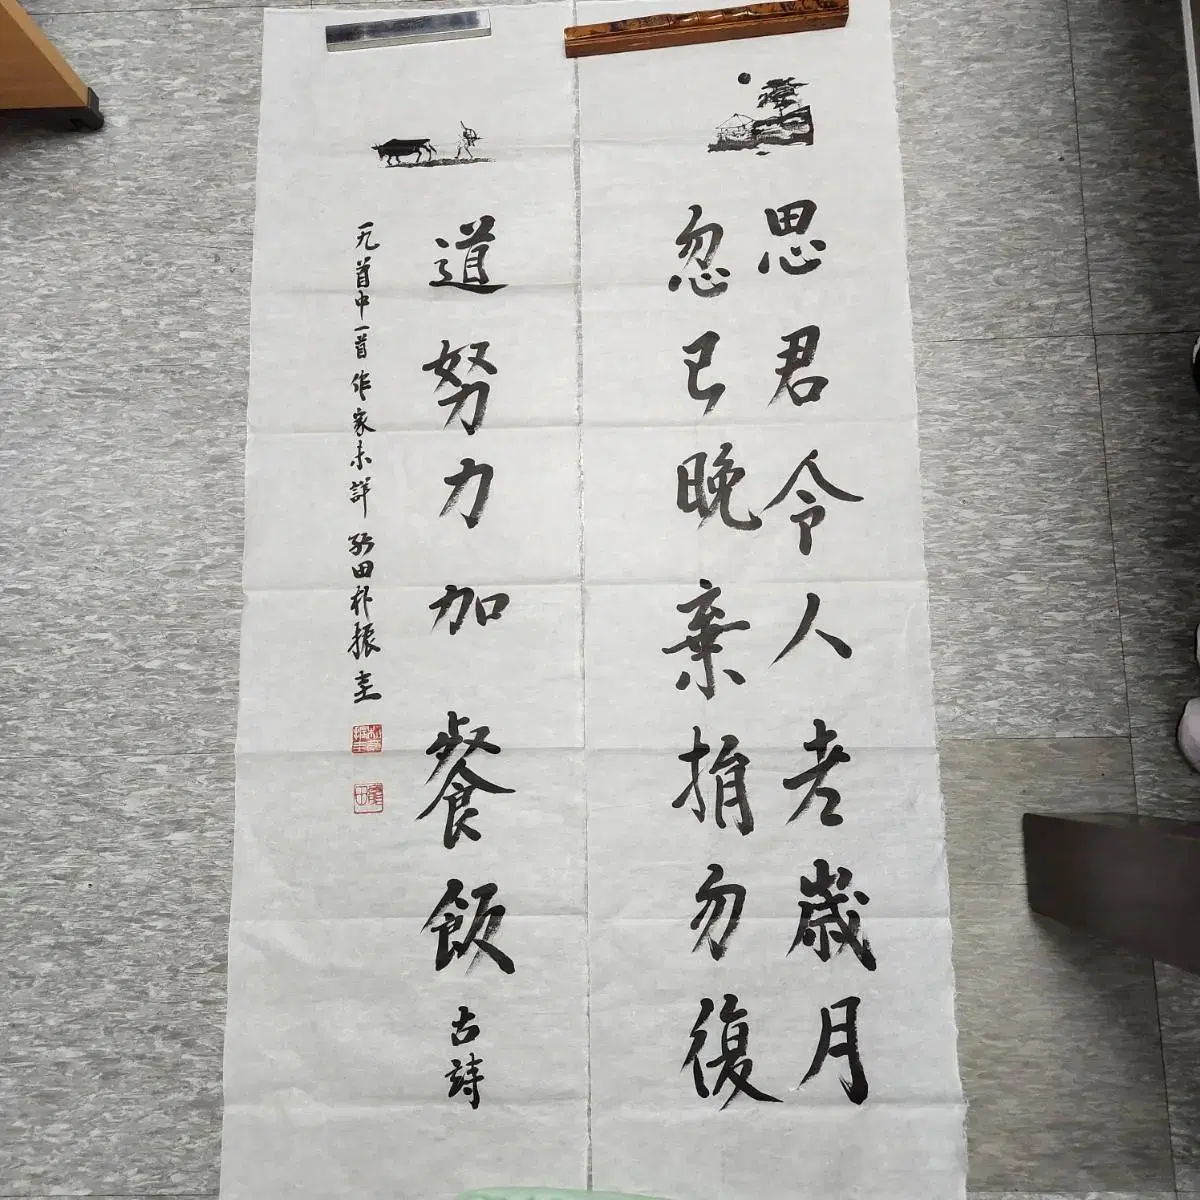 思君令人老歲月
忽已晩棄捐勿復
道努力加餐飯 古詩
一九首中一首 作家未詳 田朴振圭